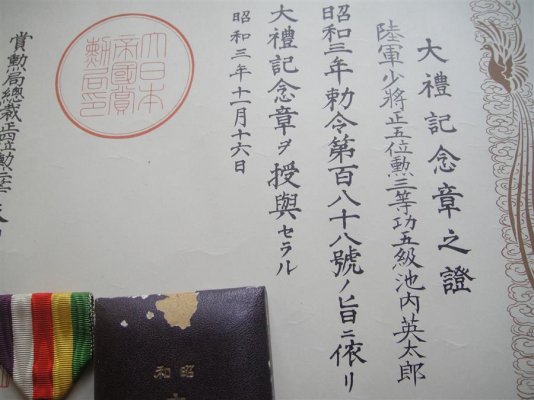 大禮記念章之證
陸軍少將正五位勲三等功五級池内英太郎
昭和三年勅令第百八十八號ノ旨ニ依リ
大禮記念章ヲ授與セラル
昭和三年十一月十六日
賞勲局總裁正四位勲二等
大日本
帝國賞
勲局印
昭和
大